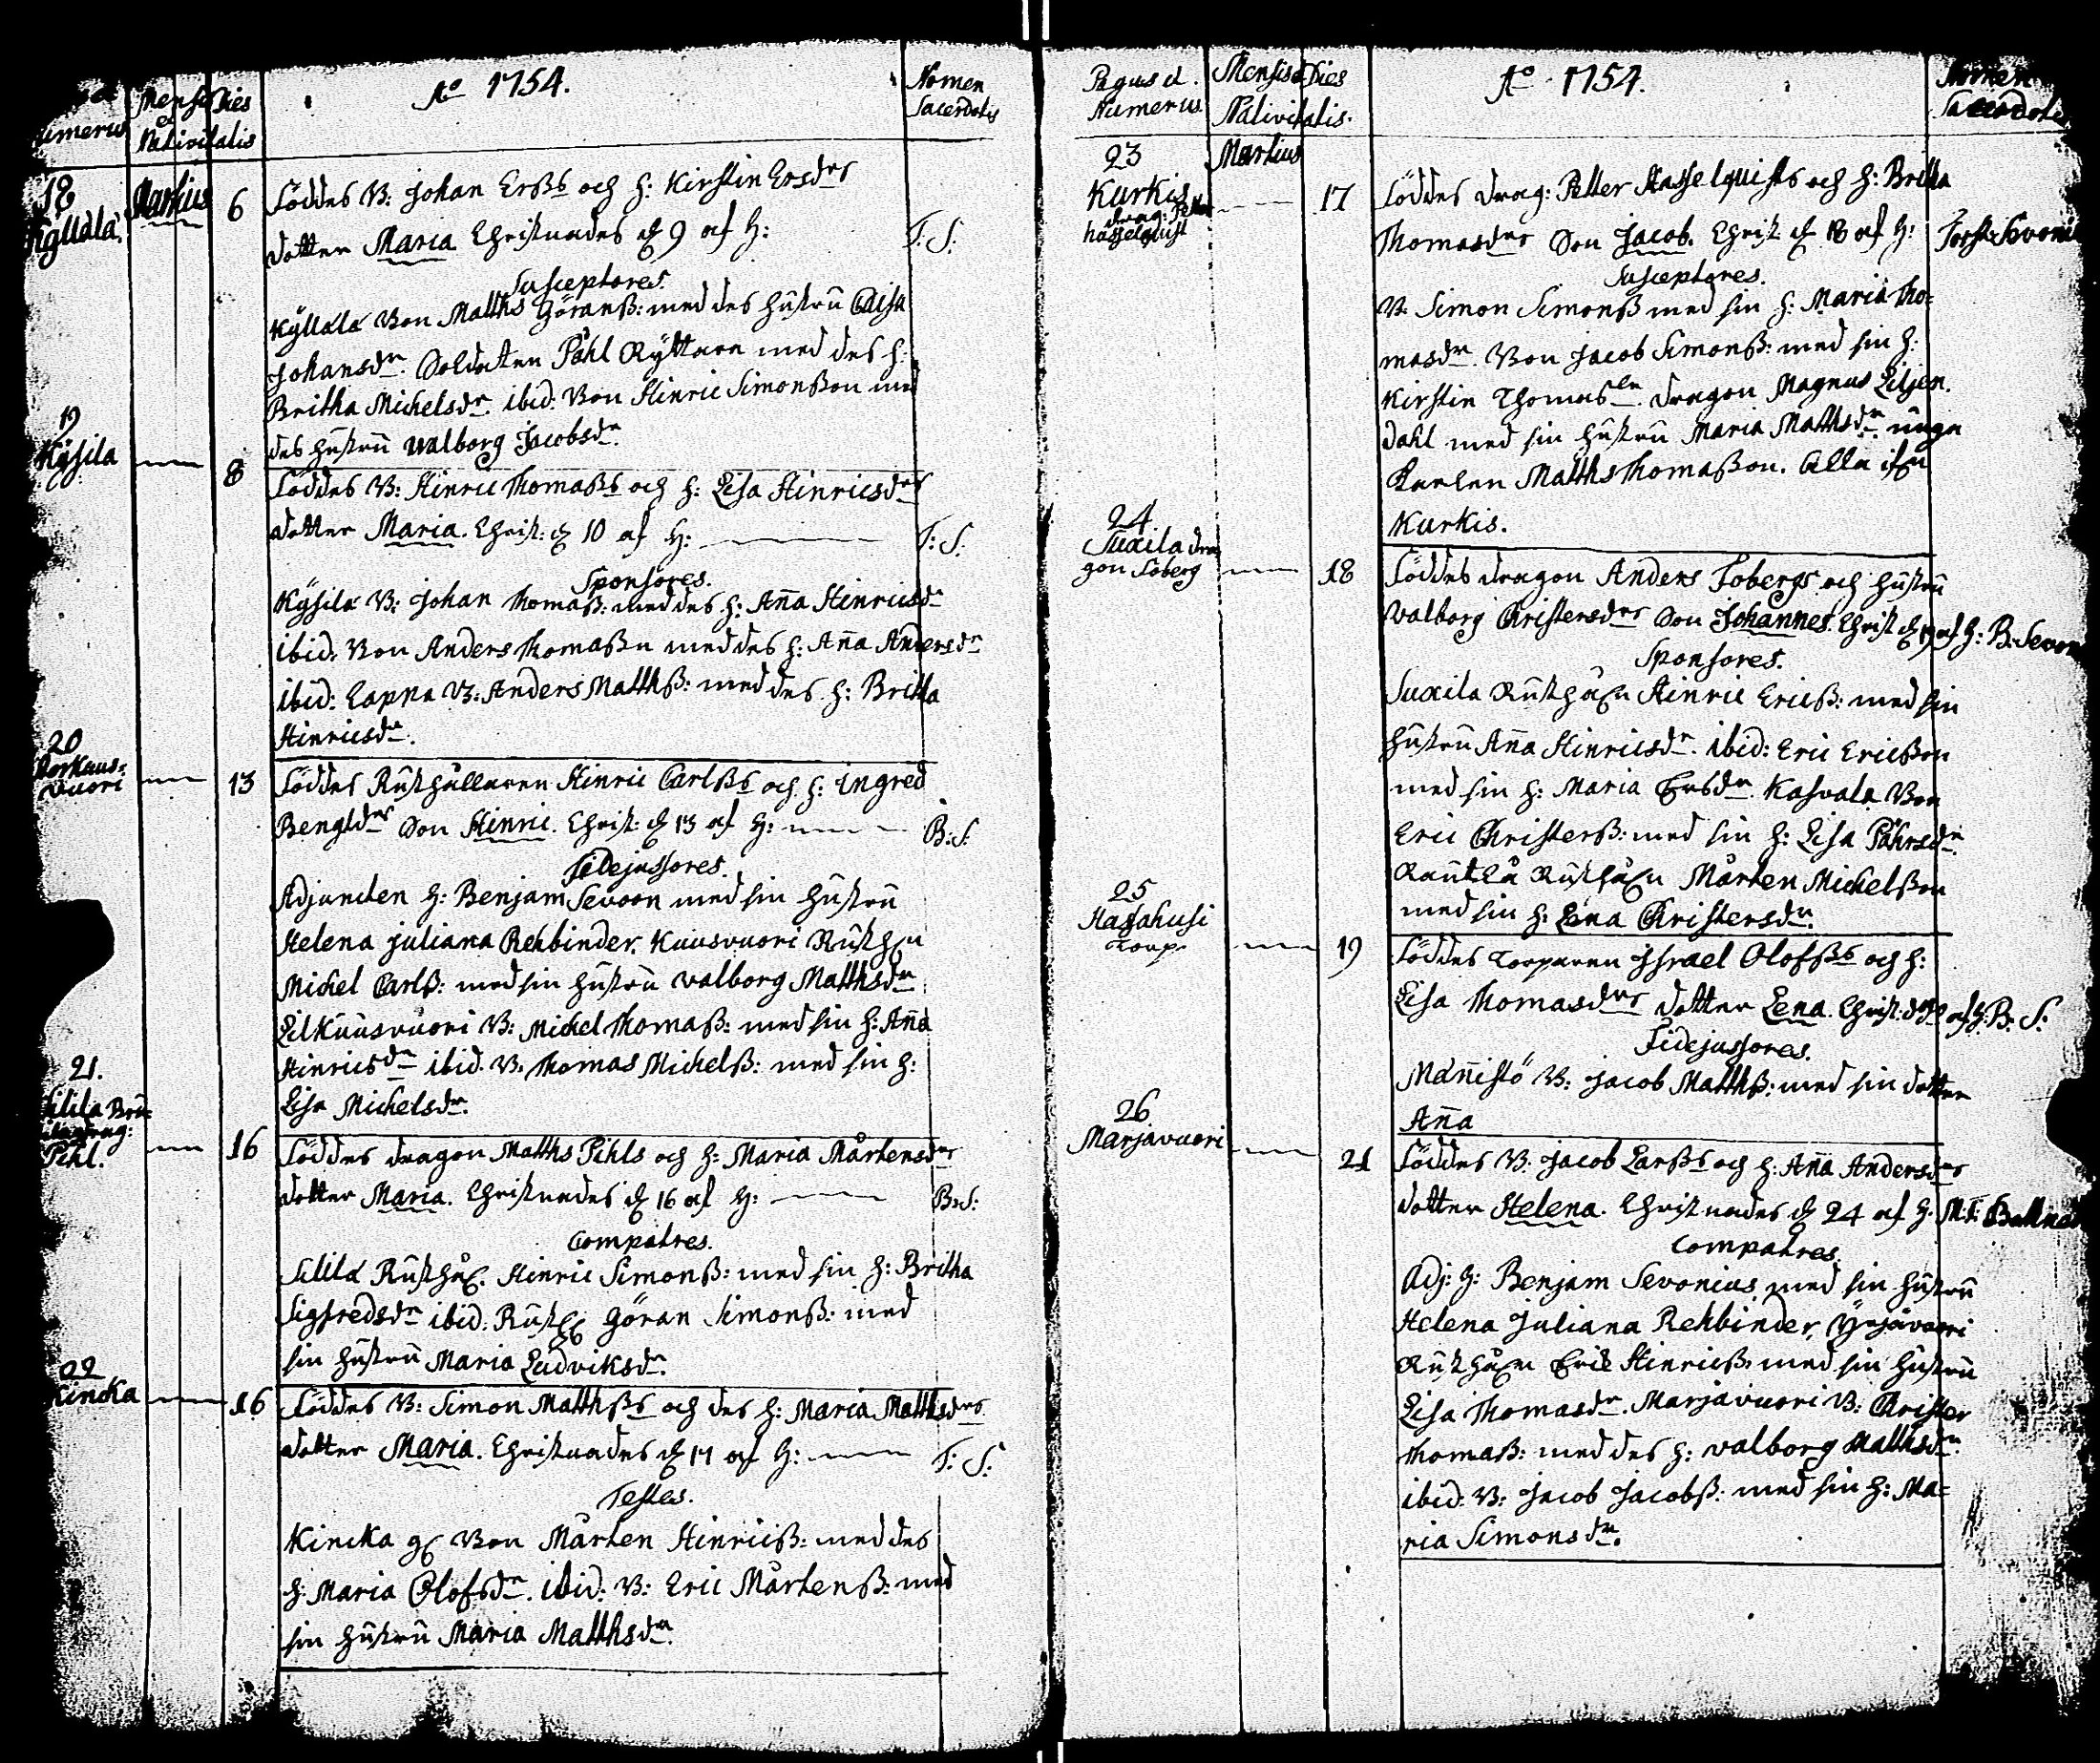 Mensis Dies
Aº 1754.
Nomen
Numerus
et
Sacerdotis
Nativitatis
18
Martius
6
Föddes B: Johan Erßs och h: Kirstin Ersdrs
Kyllälä
dotter Maria Christnades d 9 af H:
T: S:
Susceptores.
Kyllälä Bon Matths Göranß: med des hustru Caisa
Johansdr. Soldaten Påhl Ryttare med des h:
Britha Michelsdr. ibid: Bon Hinric Simonßon med
des hustru Walborg Jacobsdr.
19
Kysilä
8
Föddes B: Hinric Thomaßs och h: Lisa Hinricsdrs
dotter Maria. Christ: d 10 af H:
T: S:
Sponsores.
Kysilä B: Johan Thomaß: med des h: Aña Hinricsdr
ibid: Bon Anders Thomaßn med des h: Aña Andersdr
ibid: Lapna B: Anders Matthß: med des h: Britha
Hinricsdr.
20
Korkuus=
vuori
13
Föddes Rusthållaren Hinric Carlßs och h: Ingred
Bengtdrs Son Hinric. Christ: d 13 af H:
B: S:
Fidejussores.
Adjuncten H: Benjam Sevoon med sin hustru
Helena Juliana Rehbinder. Kuusvuori Rusth:n
Michel Carlß: med sin hustru Walborg Matthsdr
Lilkuusvuori B: Michel Thomaß: med sin h: Aña
Hinricsdr ibid. B. Thomas Michelß: med sin h:
Lisa Michelsdr.
21.
drag:
Pihl.
16
Föddes dragon Matths Pihls och h: Maria Mårtensdrs
dotter Maria. Christnades d 16 af H:
B: S:
Compatres.
Sililä Rusthål. Hinric Simonß: med sin h: Britha
Sigfredsdr ibid: Rusth: Göran Simonß: med
sin hustru Maria Ludviksdr.
22
Kincka
16
Föddes B: Simon Matthßs och des h: Maria Matthsdrs
dotter Maria. Christnades d 17 af H:
T: S:
Testes.
Kincka Bon Mårten Hinricß: med des
h: Maria Olofsdr. ibid: B: Eric Mårtenß: med
sin hustru Maria Matthsdr.
Pagus et
Mensis et Dies
Aº 1754.
Nomen
Numerus
Nativitatis.
Sacerdotis
23
Martius
Kurkis
drag: Petter
hasselquist
17
Föddes drag: Petter Hasselquists och h: Britta
Thomasdrs Son Jacob. Christ d 18 af H:
Susceptores.
B. Simon Simonß med sin h: Maria Tho=
masdr. Bon Jacob Simonß: med sin h:
Kirstin Thomasdr. dragon Magnus Liljen
dahl med sin hustru Maria Matthsdr unga
Karlen Matths Thomaßon. Alla ifrn
Kurkis.
24
Suxila dra
gon Foberg
18
Föddes dragon Anders Fobergs och hustru
Walborg Christersdrs Son Johannes. Christ d 19 af H: B: Sevon
Sponsores.
Suxila Rusthåln Hinric Ericß: med sin
hustru Aña Hinricsdr. ibid: Eric Ericßon
med sin h: Maria Ersdr. Kasvala Bon
Eric Christerß: med sin h: Lisa Påhrsdr.
Rusthåln Mårten Michelßon
med sin h: Lena Christersdr.
25
Torp.
19
Föddes Torparen Israel Olofßs och h:
Lisa Thomasdrs dotter Lena. Christ: af H: B: S:
Fidejussores.
Mäñistö B: Jacob Matthß: med sin dotter
Aña
26
Marjavuori
21
Föddes B: Jacob Larßs och h: Aña Andersdrs
dotter Helena. Christnades d 24 af H.
Compatres.
Adj: H: Benjam Sevonius med sin hustru
Helena Juliana Rehbinder, Yrjävuori
Rusthåln Eric Hinricß: med sin hustru
Lisa Thomasdr. Marjavuori B: Christer
Thomaß: med des h: Walborg Matthsdr.
ibid: B: Jacob Jacobß: med sin h: Ma=
ria Simonsdr.